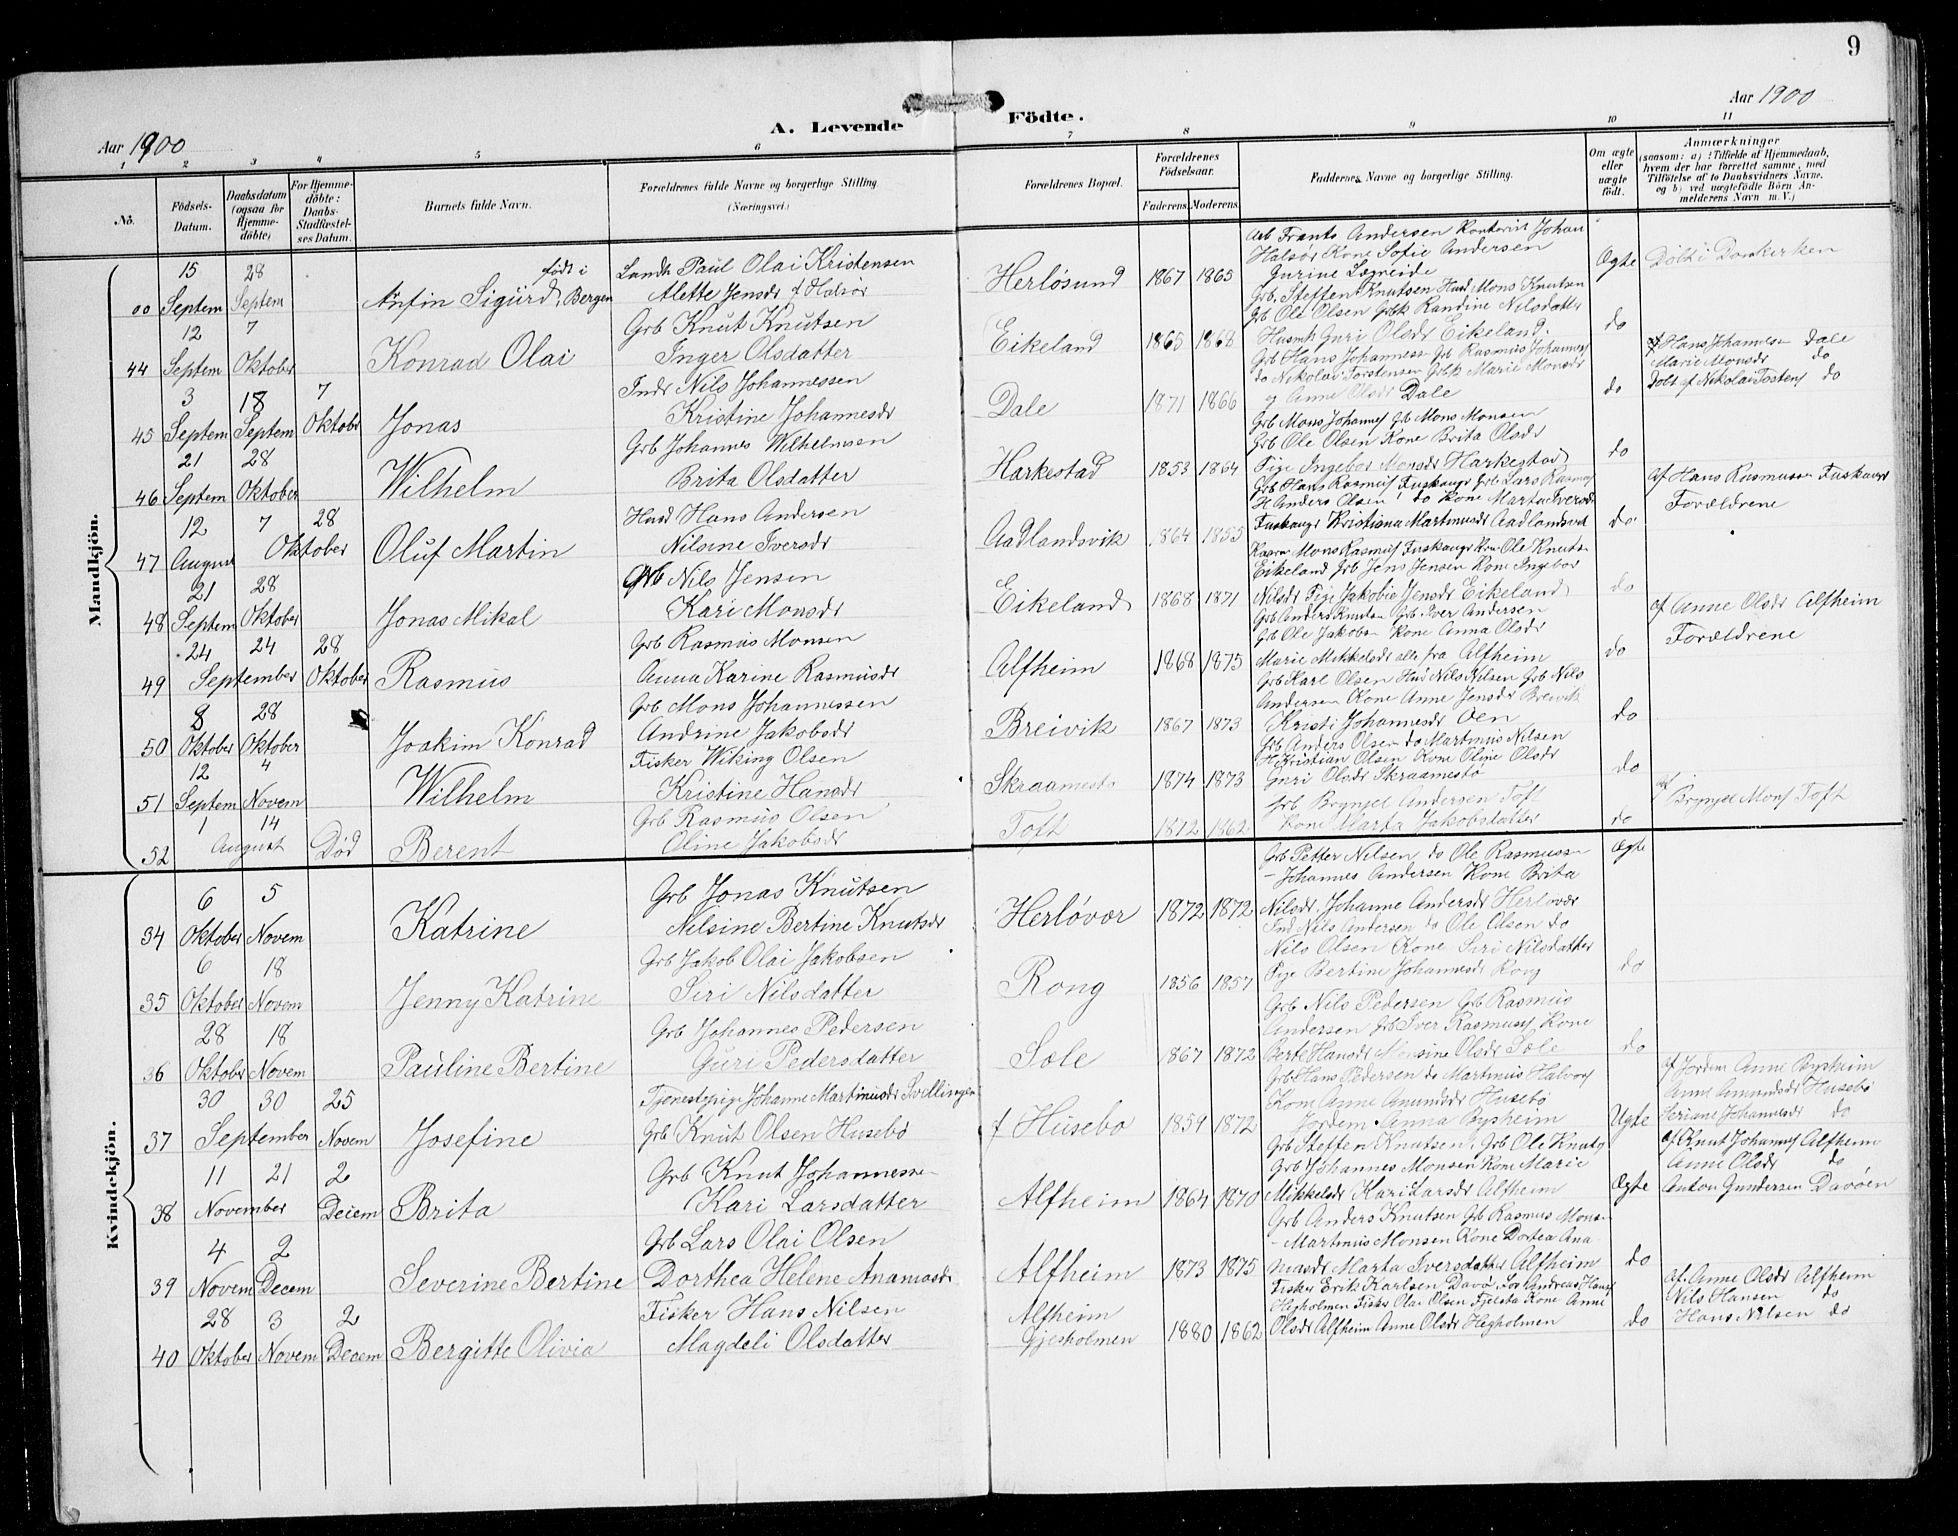 9
Aar 1900
A. Levende
Födte.
Aar 1900
1 2 3 4 5 6 7 8 9 10 11
No.
Födsels-Datum.
Daabsdatum (ogsaa för Hjemmedöbte)
For Hjemmedöbte: Daabs-Stadfæstelses Datum.
Barnets fulde Navn.
Forældrenes fulde Navne og borgerlige Stilling (Næringsvei.)
Forældrenes Bopæl.
Forældrenes Födselsaar.
Faderens. Moderens.
Faddernes Navne og borgerlige Stilling.
Om ægte eller uægte födt.
Anmærkninger
(saasom: a) i Tilfælde af Hjemmedaab, hvem der har forrettet samme, med Tilföielse af to Daabsvidners Navne, og b) ved uægtefödte Börn Anmelderens Navn m. V.)
Mandkjön.
00 15 Septem 28 Septem Arnfin Sigurd født i Bergen
Landh Paul Olai Kristensen
Alette Jensdr f Halsør
Herløsund 1867 1865
Arb Frants Andersen Kontorist Johan
Halsør Kone Sofie Andersen
Gurine Legreide
Ægte Døbt i Domkirken
44 12 Septem 7 Oktober Konrad Olai
Grb Knut Knutsen
Inger Olsdatter
Eikeland 1865 1868
Grb. Steffen Knutsen Husd Mons Knutsen
Grb Ole Olsen Grbk Randine Nilsdatter
Husmk Guri Olsdr Eikeland.
do
45 3 Septem 18 Septem 7 Oktober Jonas
Indr Nils Johannessen
Kristine Johannesdr
Dale 1871 1866
Grb Hans Johannesse Grb Rasmus Johannes
do Nikolai Torstensen Grbk Marie Monsdr
og Anne Olsdr Dale
do
af Hans Johannesen Dale
Marie Monsdr do
Døbt af Nikolai Tostens do
46 21 Septem 28 Oktober Wilhelm
Grb Johannes Wilhelmsen
Brita Olsdatter
Harkestad 1853 1864
Grb Mons Johannes Grb Mons Monsen
Grb Ole Olsen Kone Brita Olsdr
Pige Ingebor Monsdr Harkestad
do
47 12 August 7 28 Oktober Oluf Martin
Husd Hans Andersen
Nilsine Iversdr
Aadlandsvik 1864 1855
Grb Hans Rasmus Fuskanger Grb Lars Rasmus
H Anders Olsen do Kone Marta Iversdr
Fuskanger Kristiana Martinusdr Aadlandsvik
do
af Hans Rasmussen Fuskanger
Forældrene
48 21 Septem 28 Oktober Jonas Mikal
Grb Nils Jensen
Kari Monsdr
Eikeland 1868 1871
Mons Rasmus Fuskanger Ole Knuts
Eikeland Grb Jens Jensen Kone Ingebor
Nilsdr Pige Jakobie Jensdr Eikeland
do
49 24 24 September 28 Oktober Rasmus
Grb Rasmus Monsen
Anna Karine Rasmusdr
Alfheim 1868 1875
Grb Anders Knutsen Grb. Iver Andersen
Grb Ole Jakobse Kone Anna Olsdr
Marie Mikkelsdr alle fra Alfheim
do
af Anne Olsdr Alfheim
Forældrene
50 8 Oktober 28 Oktober Joakim Konrad
Grb Mons Johannessen
Andrine Jakobsdr
Breivik 1867 1873
Grb Karl Olsen Husd Nils Nilsen Grb Nils
Andersen Kone Anne Jensdr Breivik
Kristi Johannesdr Øen
do
51 12 Septem 4 Novem Wilhelm
Fisker Wiking Olsen
Kristine Hansdr
Skraamestø 1874 1873
Grb Anders Olsen do Martinus Nilsen
H Kristian Olsen Kone Oline Olsdr
Guri Olsdr Skraamestø
do
52 1 14 August Død Berent
Grb Rasmus Olsen
Oline Jakobsdr
Toft 1872 1862
Grb Brynjel Andersen Toft
Kone Marta Jakobsdatter
do
af Brynjel Mons Toft
Kvindekjön.
34 6 Oktober 5 Novem Katrine
Grb Jonas Knutsen
Nilsine Bertine Knutsdr
Herløvær 1872 1872
Grb Petter Nilsen do Ole Rasmusse
- Johannes Andersen Kone Brita
Nilsdr, Johanne Andersdr Herløvær
Ægte
35 6 Oktober 18 Novem Jenny Katrine
Grb Jakob Olai Jakobsen
Siri Nilsdatter
Rong 1856 1857
Ind Nils Andersen do Ole Olsen do
Nils Olsen Kone Siri Nilsdatter
Pige Bertine Johannesdr Rong
do
36 28 Oktober 18 Novem Pauline Bertine
Grb Johannes Pedersen
Guri Pedersdatter
Sæle 1867 1872
Grb Nils Pedersen Grb Rasmus
Andersen Grb Iver Rasmuss Kone
Berte Hansdr Monsine Olsdr Sæle
do
37 30 30 September 25 Novem Josefine
Tjenestepige Johanne Martinusdr Svellingen
Grb Knut Olsen Husebø
f Husebø 1859 1872
Grb Hans Pedersen do Martinus Halvors
Kone Anne Amundsdr Husebø
Jordem Anna Bysheim
Uægte
af Jordem Anne Bysheim
Anne Amundsdr Husebø
Seriane Johannesdr do
38 11 21 November 2 Decem Brita
Grb Knut Johannesse
Kari Larsdatter
Alfheim 1864 1870
Grb Steffen Knutsen, Grb Ole Knuts
Grb Johannes Monsen Kone Marie
Mikkelsdr Kari Larsdr Alfheim
Ægte
af Knut Johannes Alfheim
Anne Olsdr do
Anton Gundersen Davøen
39 4 Novem 2 Decem Severine Bertine
Grb Lars Olai Olsen
Dorthea Helene Ananiasdr
Alfheim 1873 1875
Grb Anders Knutsen Grb Rasmus Monse
- Martinus Monsen Kone Dortea Ana
niasdr Marta Iversdatter Alfheim
do
40 28 Oktober 3 Novem 2 Decem Bergitte Olivia
Fisker Hans Nilsen
Magdeli Olsdatter
Alfheim
Gjesholmen 1880 1862
Fisker Erik Karlsen Davø Los Andreas Hans
Hegholmen Fisker Olai Olsen Fjelstø Kone Anne
Olsdr Alfheim Anne Olsdr Hegholmen
do
af. Anne Olsdr Alfheim
Nils Hansen do
Hans Nilsen do